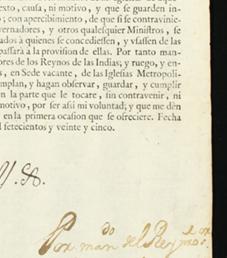 exto, causa, ni motivo, y que se guarden in-
o; con apercibimiento, de que si se contravinie-
vernadores, y otros qualesquier Ministros, se
ados à quienes se concediessen, y vsassen de las
passarà la provision de ellas. Por tanto man-
ores de los Reynos de las Indias; y ruego, y en-
s, en Sede vacante, de las Iglesias Metropoli-
mplan, y hagan observar, guardar, y cumplir
n la parte que le tocare, sin contravenir, ni
motivo, por ser assi mi voluntad; y que me dèn
en la primera ocasion que se ofreciere. Fecha
l setecientos y veinte y cinco.
Por mando del Rey